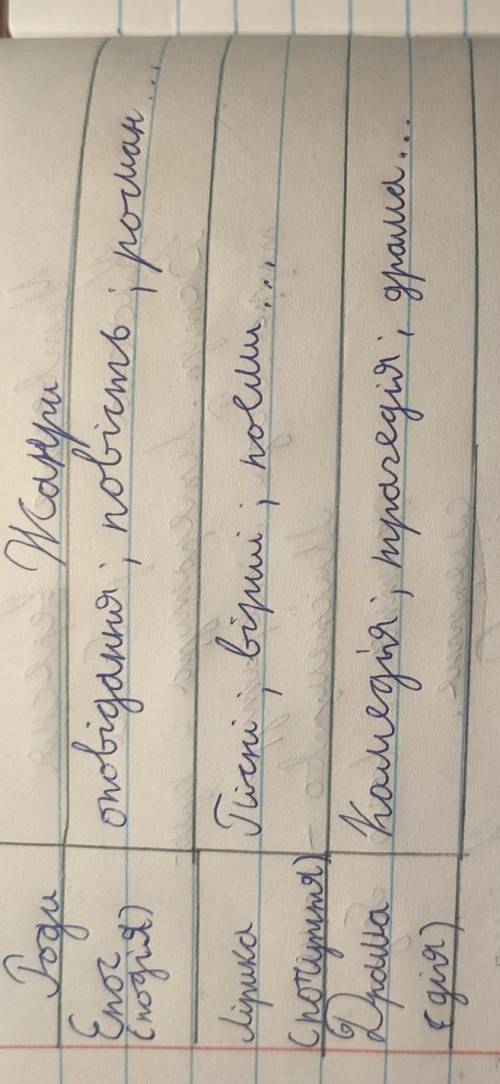 Роди Жанри
Епос оповідання, повість, роман...
(подія)
Лірика Пісні, вірші, поеми...
(почуття)
Драма Камедія, трагедія, драма...
(дія)